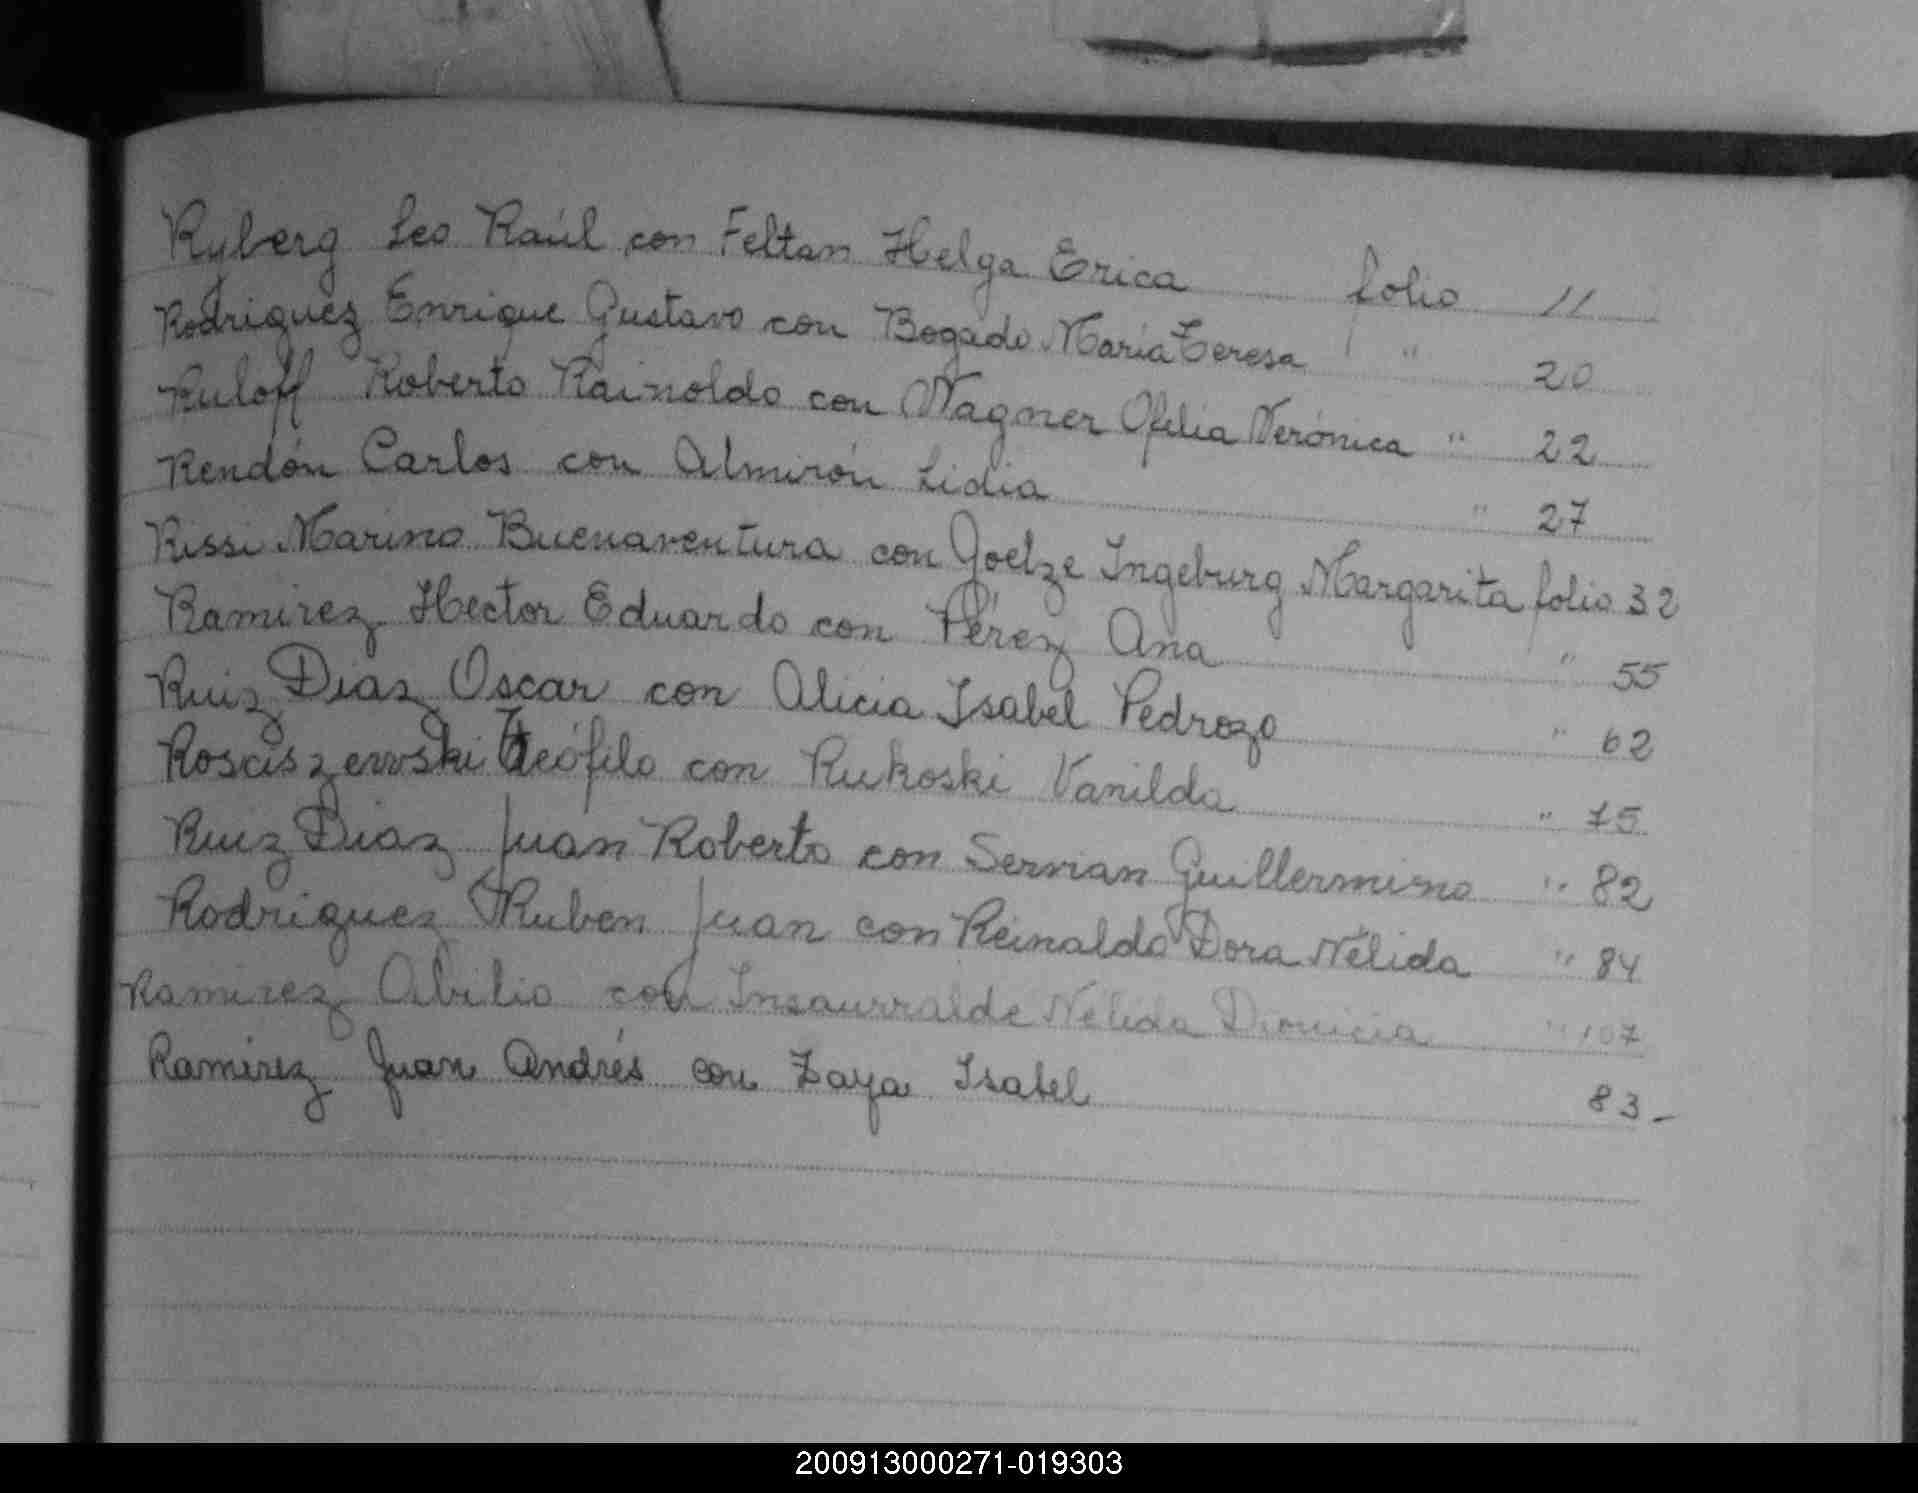 Ryberg Leo Raúl con Feltan Helga Erica folio 11
Rodriguez Enrique Gustavo con Bogado María Teresa " 20
Ruloff Roberto Rainoldo con Wagner Ofelia Verónica " 22
Rendón Carlos con Almirón Lidia " 27
Rissi Marino Buenaventura con Goetze Ingeburg Margarita folio 32
Ramirez Hector Eduardo con Pérez Ana " 55
Ruiz Diaz Oscar con Alicia Isabel Pedrozo " 62
Rosciszewski Teófilo con Rukoski Vanilda " 75
Ruiz Diaz Juan Roberto con Servian Guillermina " 82
Rodriguez Ruben Juan con Reinaldo Dora Nélida " 84
Ramirez Abilio con Insaurralde Nélida Dionicia " 107
Ramírez Juan Andrés con Zaya Isabel 83-
200913000271-019303